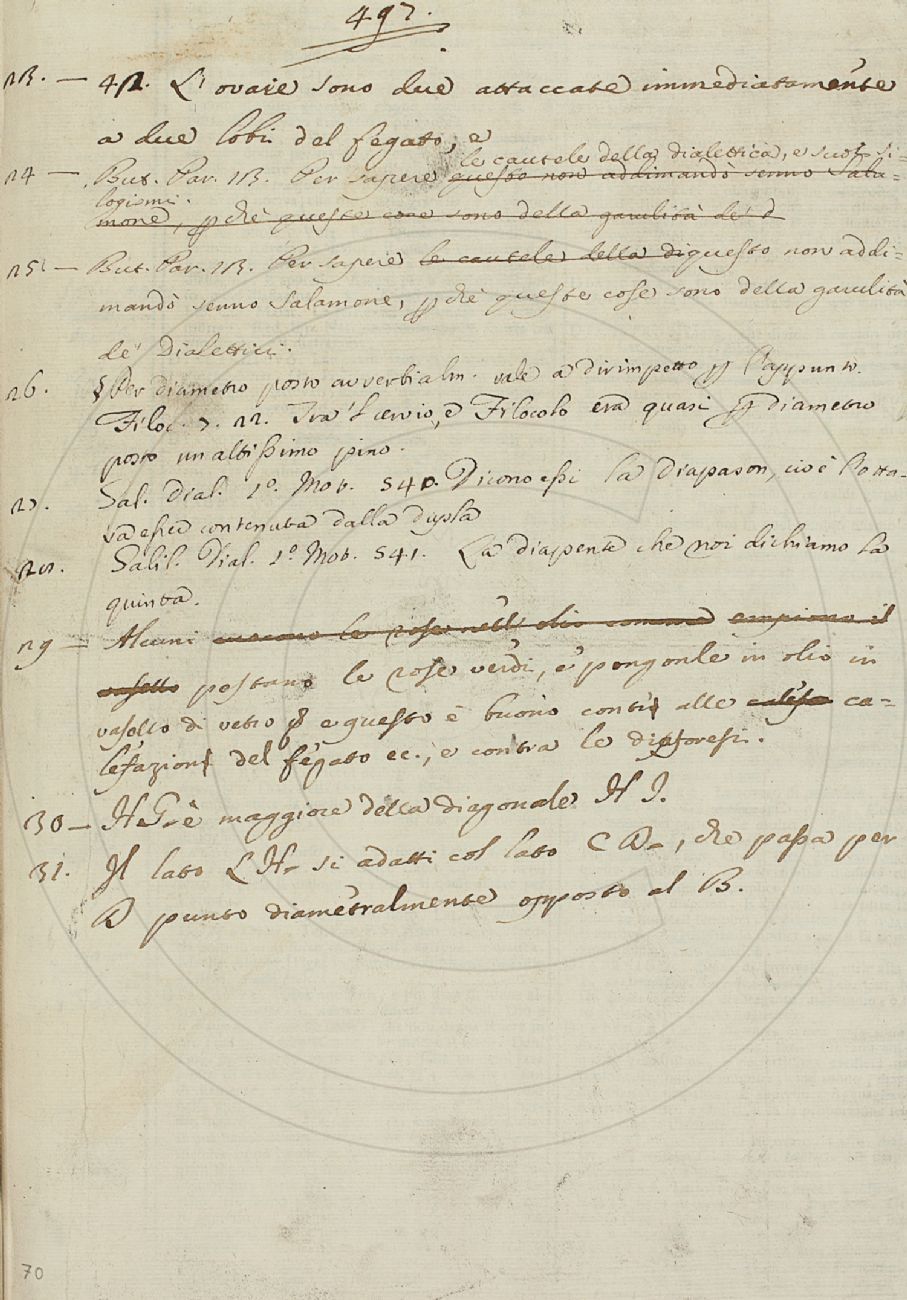 497.
23. — 42. L'ovaie sono due attaccate immediatamente
a due lobi del fegato, e
le cautele della dialettica, e suoi si-
24 — But. Par. 13. Per sapere questo non addimandò senno Sala-
logismi.
mone, pchè queste cose sono della garulità de' d
25. — But. Par. 13. Per sapere le cautele della di questo non addi-
mandò senno Salamone, pchè queste cose sono della garulità
de' Dialettici.
26. § Per diametro posto avverbialm. vale a dirimpetto p l'appunto.
Filoc. 7. 22. Tra 'l cervio, e Filocolo era quasi p diametro
posto un altissimo pino.
27. Gal. Dial. 1º. Mot. 540. Dicono essi la Diapason, cioè l'otta-
va esser contenuta dalla dupla
28. Galil. Dial. 1º Mot. 541. La diapente che noi dichiamo la
quinta.
29 — Alcuni cuocono le rose nell' olio comune empiono il
vasello pestano le rose verdi, e pongonle in olio in
vasello di vetro e questo è buono contr alle calefa ca-
lefazion del fegato ec., e contra le diaforesi.
30 — H G è maggiore della diagonale H I.
31. Il lato L H si adatti col lato C D, che passa per
D punto diametralmente opposto al B.
70